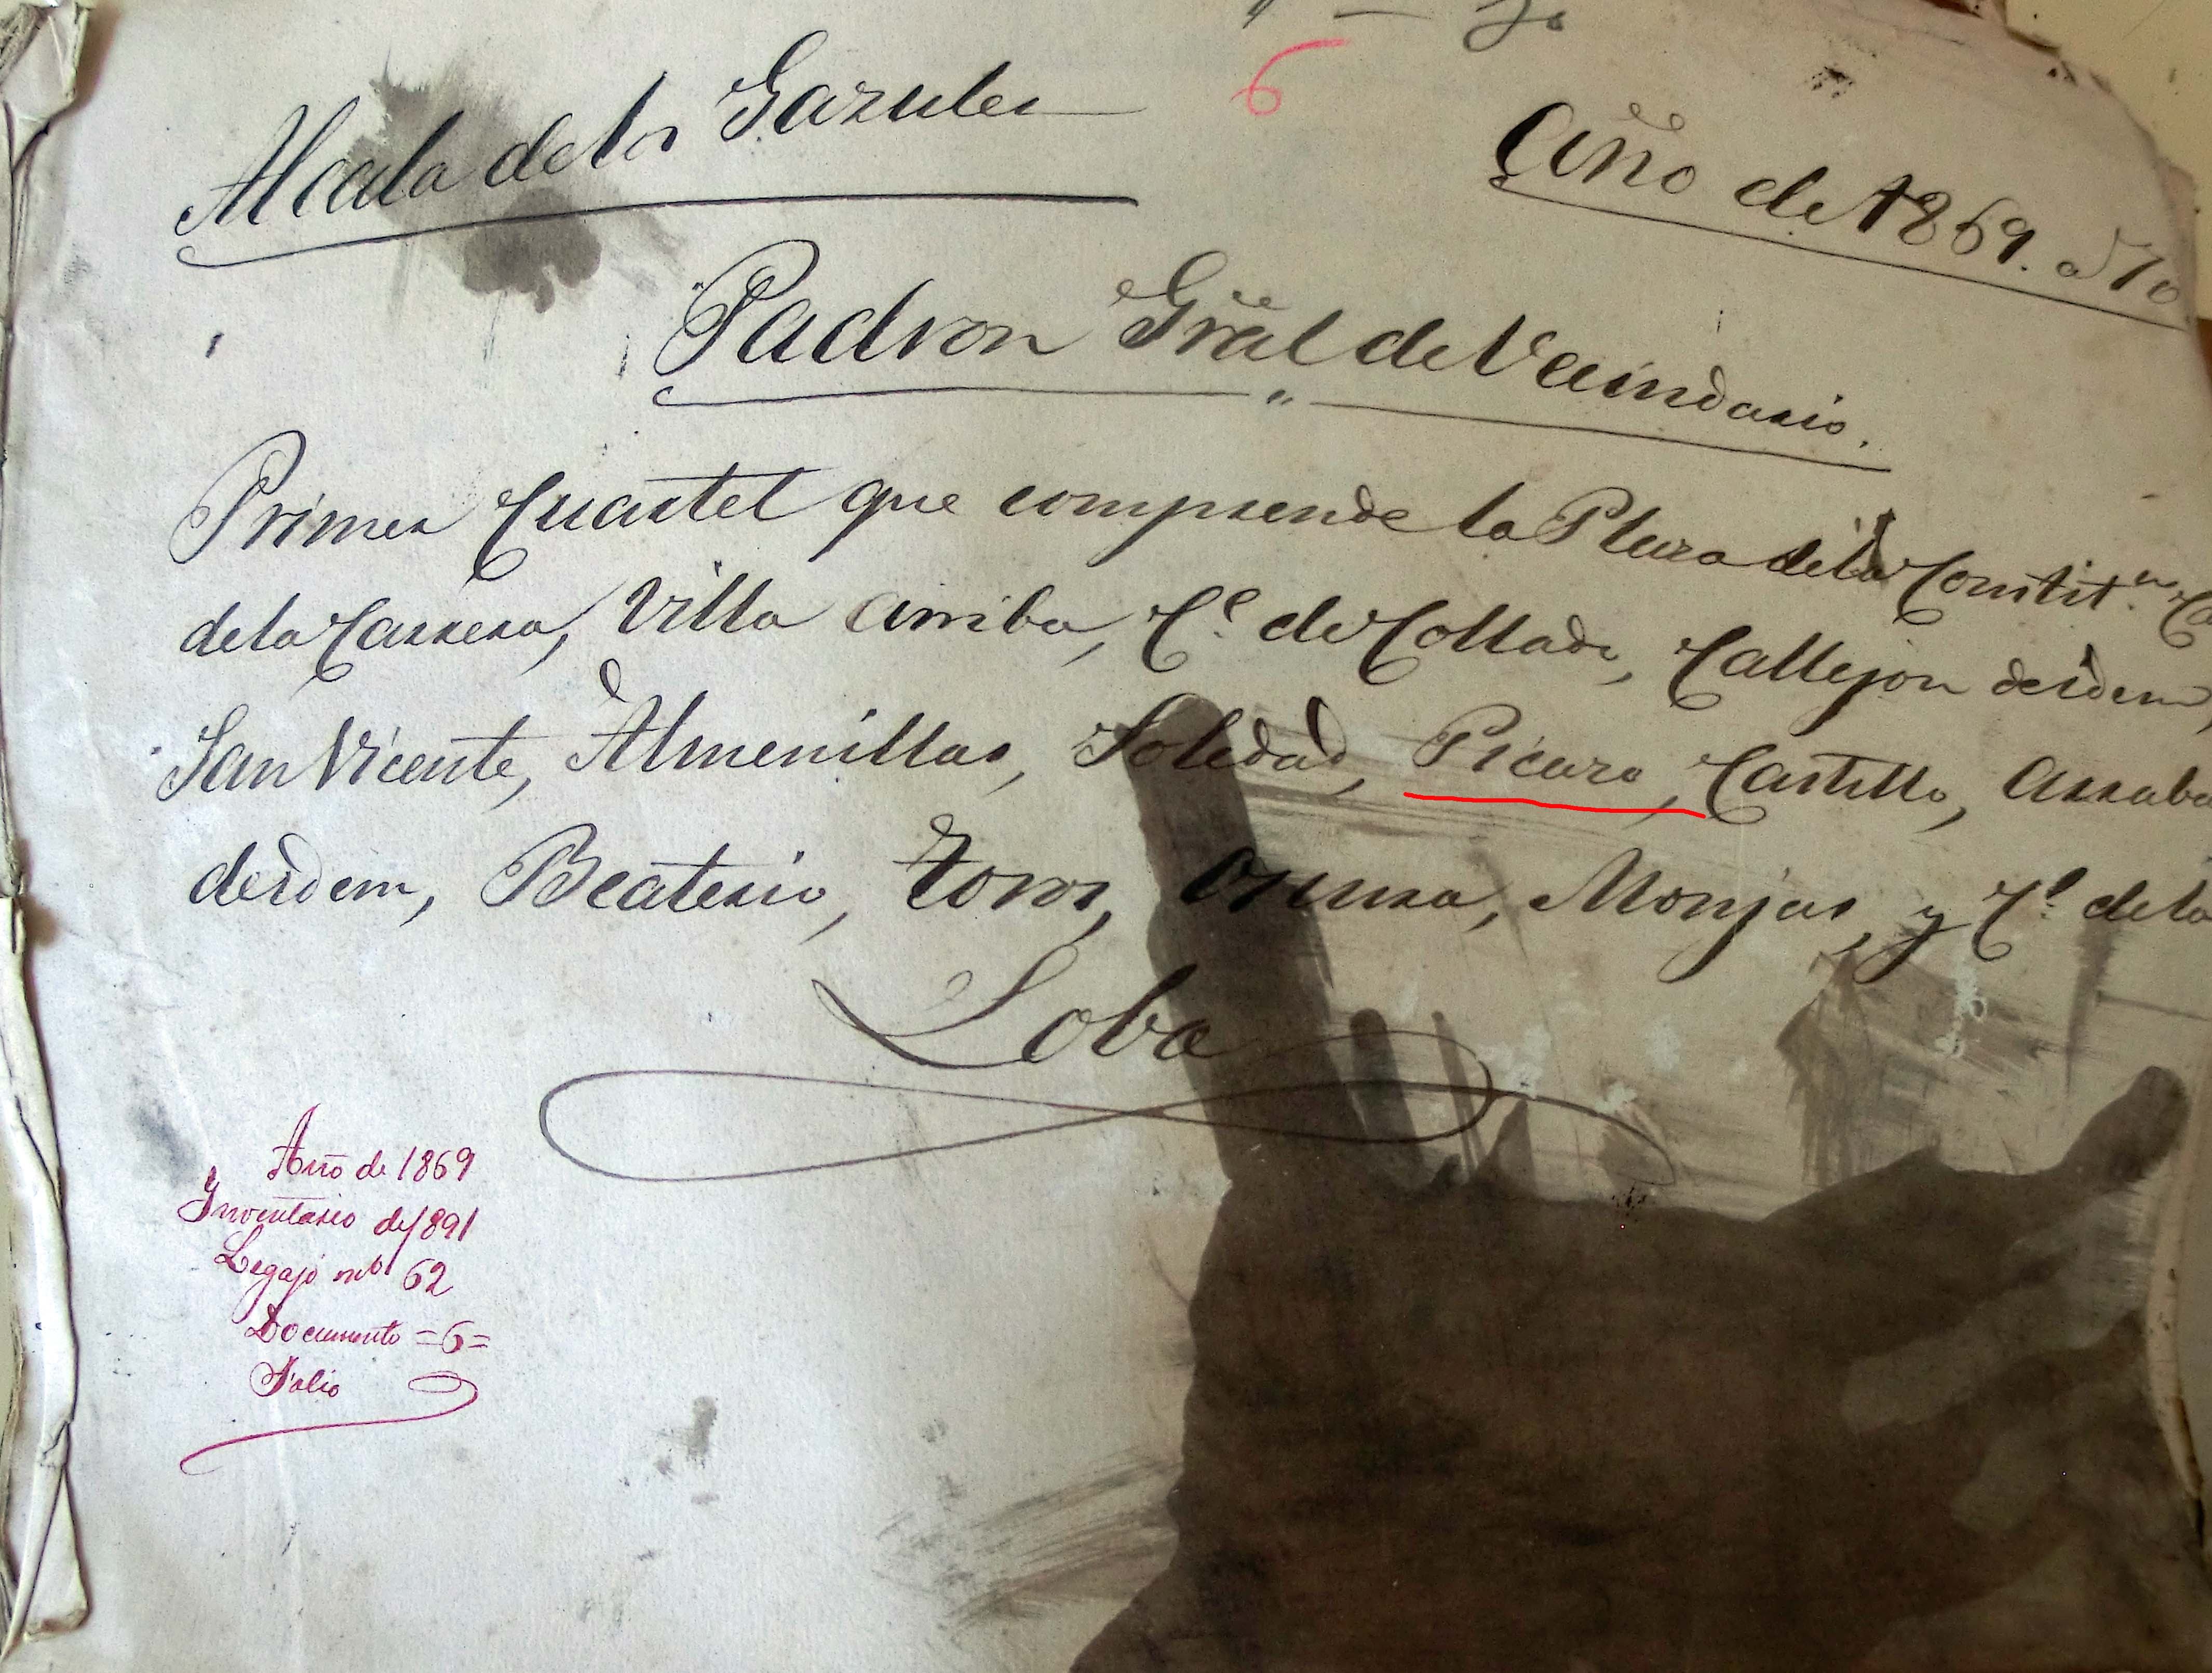 6
Alcala de los Gazules
Año de 1869. a 70
Padron Gral de Vecindario.
Primer Cuartel que comprende la Plaza de la Constit.on Ca
de la Carrera, Villa arriba, C.e de Collado, Callejon de idem,
San Vicente, Almenillas, Soledad, Picazo, Castillo, Arraba
de idem, Beaterio, Toros, Osuna, Monjas, y C.e de la
Loba
Año de 1869
Inventario de 1891
Legajo nº 62
Documento =6=
Folio